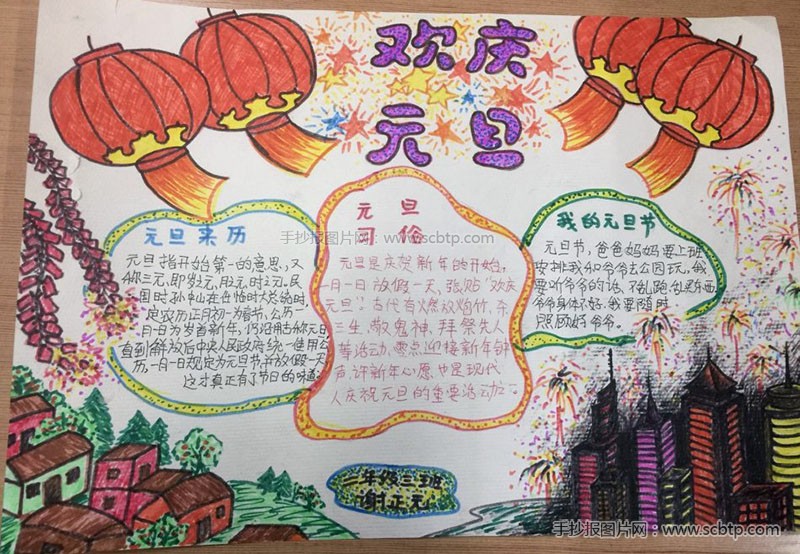 欢庆
元旦
元旦来历
元旦指开始第一的意思,又
称三元,即岁之元,月之元,时之元,民
国时孙中山在
定农历正月初一为春节,公历一
月一日为岁首新年,仍沿用古称元旦
直到解放后中央人民政府统一使用公
历,一月一日规定为元旦节,并放假一天
这才真正有了节日的味道
元旦
习俗
元旦是庆贺新年的开始,
一月一日放假一天,张贴“欢庆
元旦”。古代有燃放炮竹,杀
三生,敬鬼神,拜祭先人
等活动,零点迎接新年钟
声,许新年心愿,也是现代
人庆祝元旦的重要活动之一
我的元旦节
元旦节,爸爸妈妈要上班
安排我和爷爷去公园玩,我
要听爷爷的话,不乱跑,乱买东西
爷爷身体不好,我要随时
照顾好爷爷。
二年级三班
谢正元
手抄报图片网:www.scbtp.com
手抄报图片网:www.scbtp.com